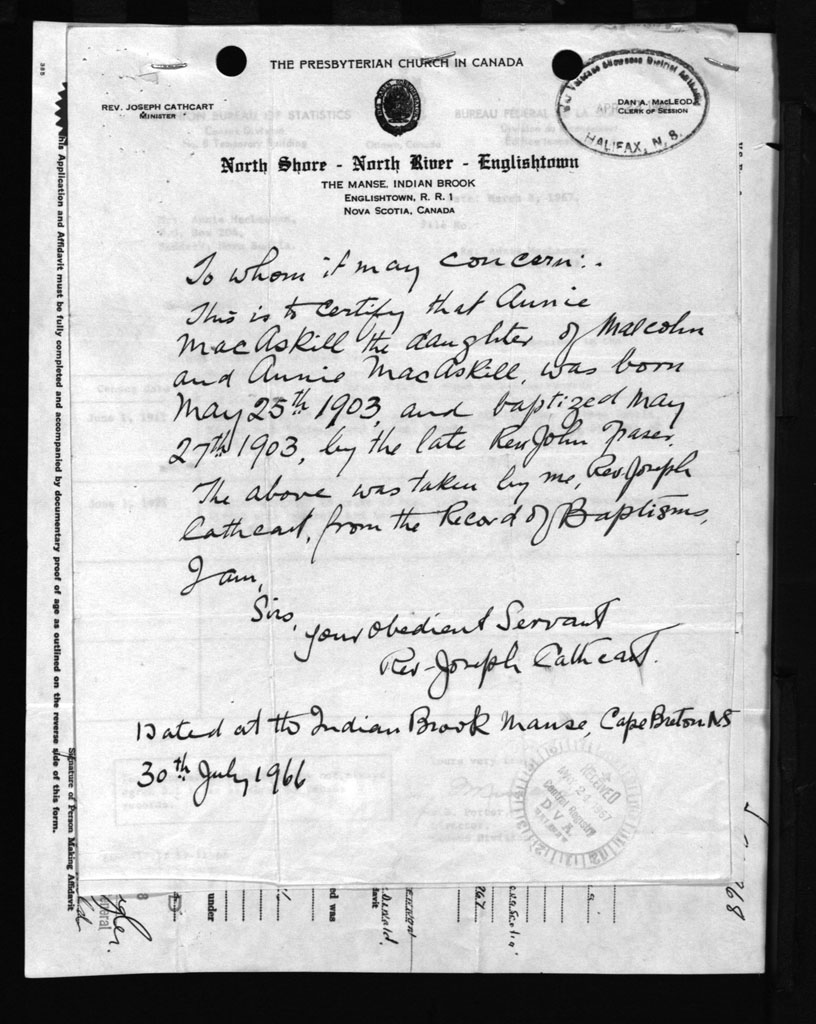 THE PRESBYTERIAN CHURCH IN CANADA
REV. JOSEPH CATHCART
MINISTER
DAN A. MACLEOD
CLERK OF SESSION
HALIFAX, N. S.
North Shore - North River - Englishtown
THE MANSE, INDIAN BROOK
ENGLISHTOWN, R. R. 1
NOVA SCOTIA, CANADA
To whom it may concern:-
This is to certify that Annie
MacAskill the daughter of Malcolm
and Annie MacAskill, was born
May 25th 1903, and baptized May
27th 1903, by the late Rev John Fraser.
The above was taken by me, Rev Joseph
Cathcart, from the Record of Baptisms,
I am,
Sirs,
your obedient Servant
Rev-Joseph Cathcart.
Dated at the Indian Brook Manse, Cape Breton NS
30th July 1966
RECEIVED
Central Registry
D.V.A.
this Application and Affidavit must be fully completed and accompanied by documentary proof of age as outlined on the reverse side of this form.
Signature of Person Making Affidavit
under
ed was
Donald
68